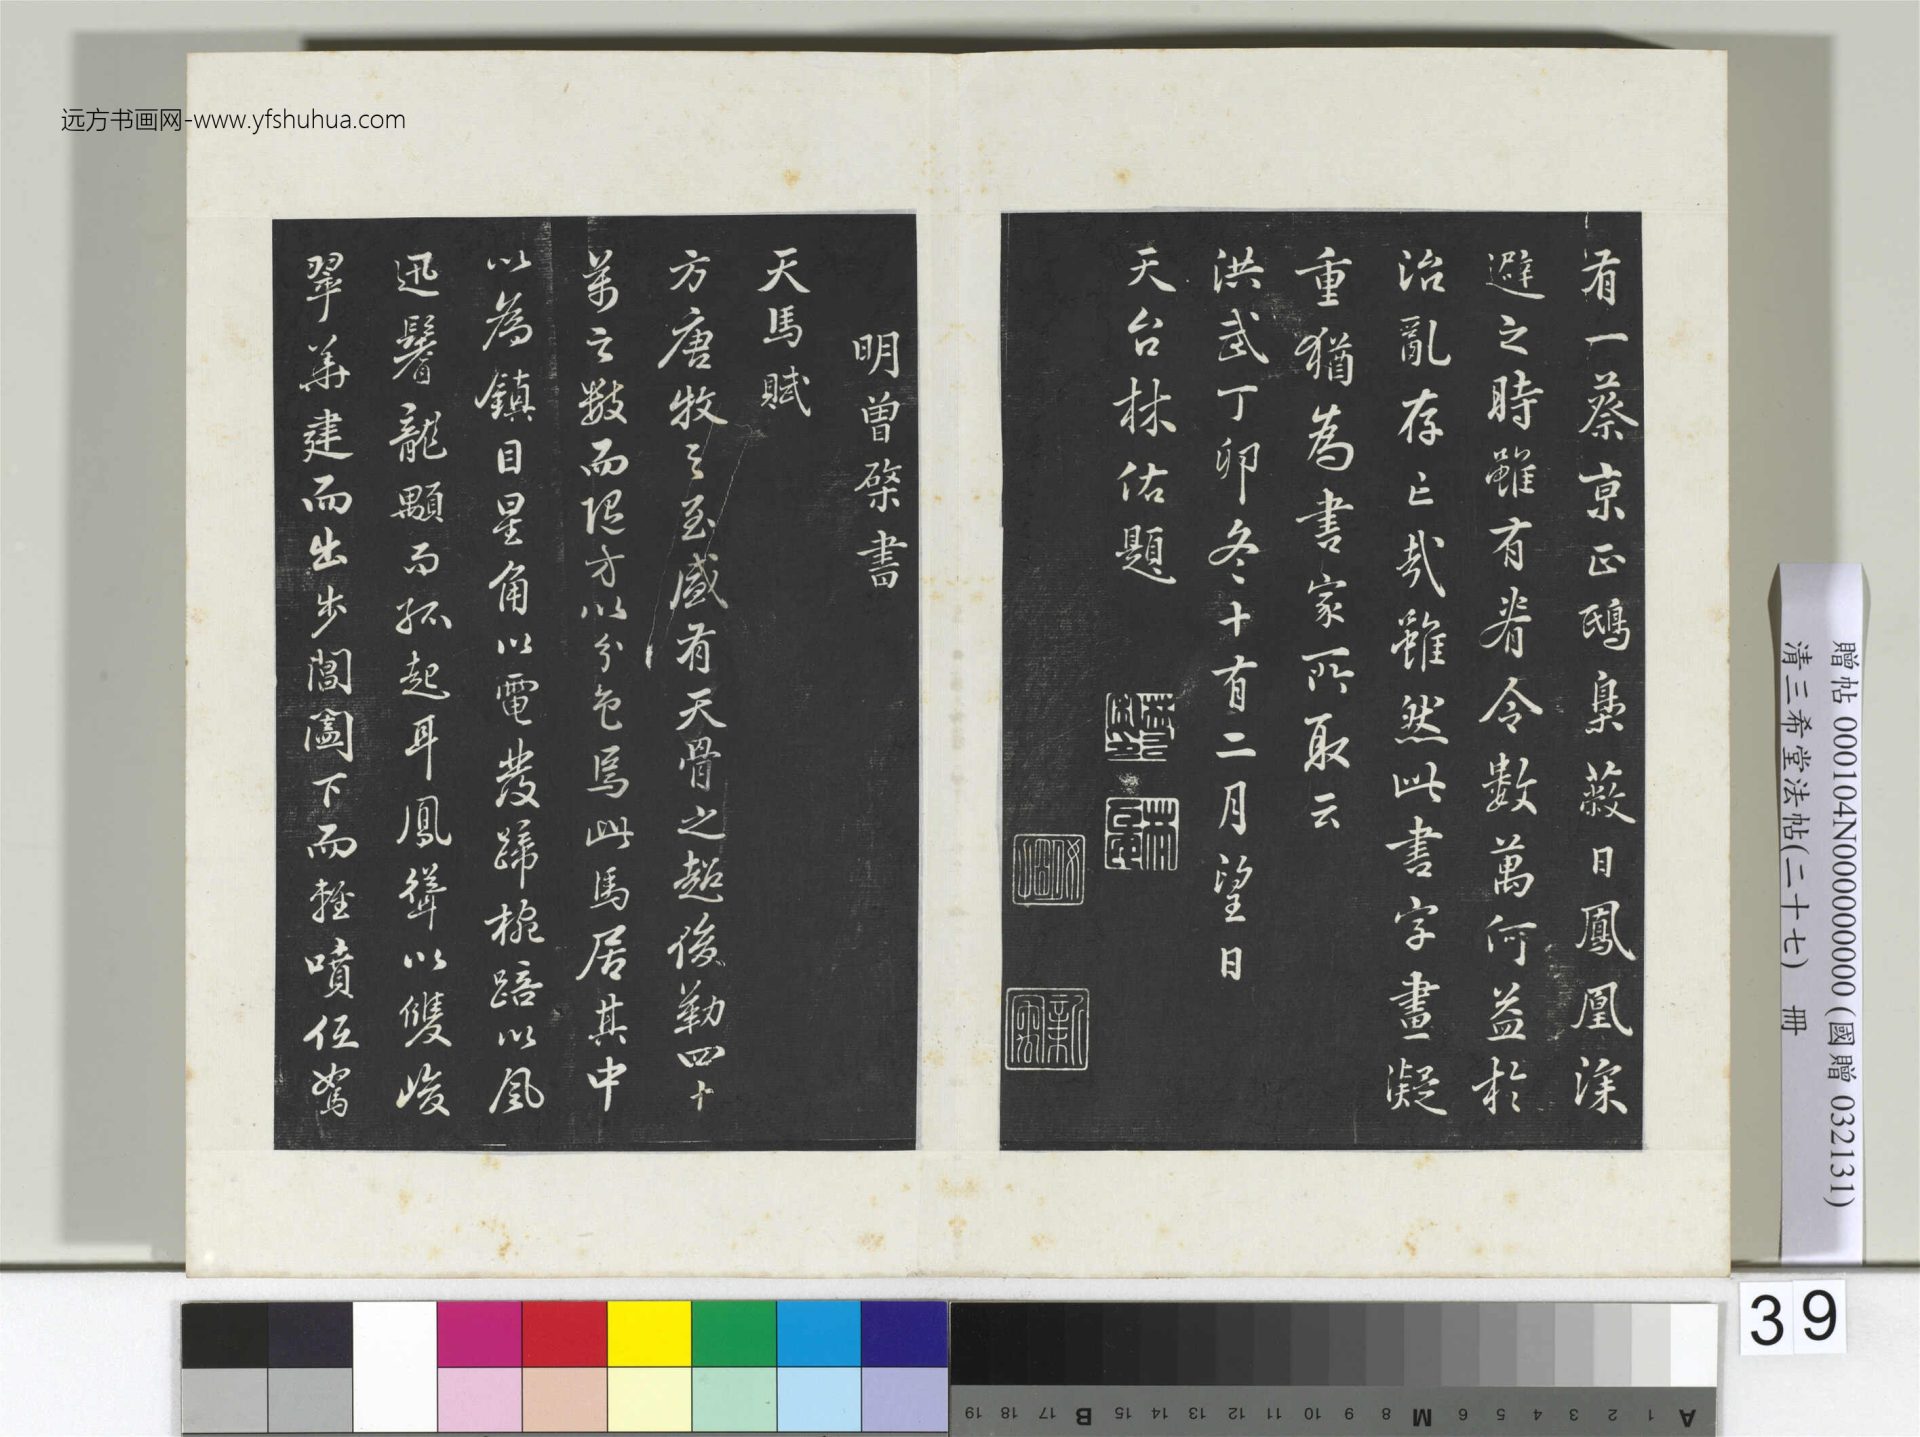 远方书画网-www.yfshuhua.com
有一蔡京正鴟梟蔽日鳳凰深
避之時雖有眷令數萬何益於
治亂存亡哉雖然此書字畫凝
重猶為書家所取云
洪武丁卯冬十有二月望日
天台林佑題
明曾棨書
天馬賦
方唐牧之至盛有天骨之超俊勒四十
萬之數而隨方以分色焉此馬居其中
以為鎮目星角以電發蹄椀踣以風
迅鬐龍顒而孤起耳鳳聳以雙峻
翠華建而出步閶闔下而輕噴低駑
贈帖 000104N000000000 (國贈 032131)
清三希堂法帖(二十七) 冊
39
19 18 17 B 16 15 14 13 12 11 10 9 8 M 7 6 5 4 3 2 1 A